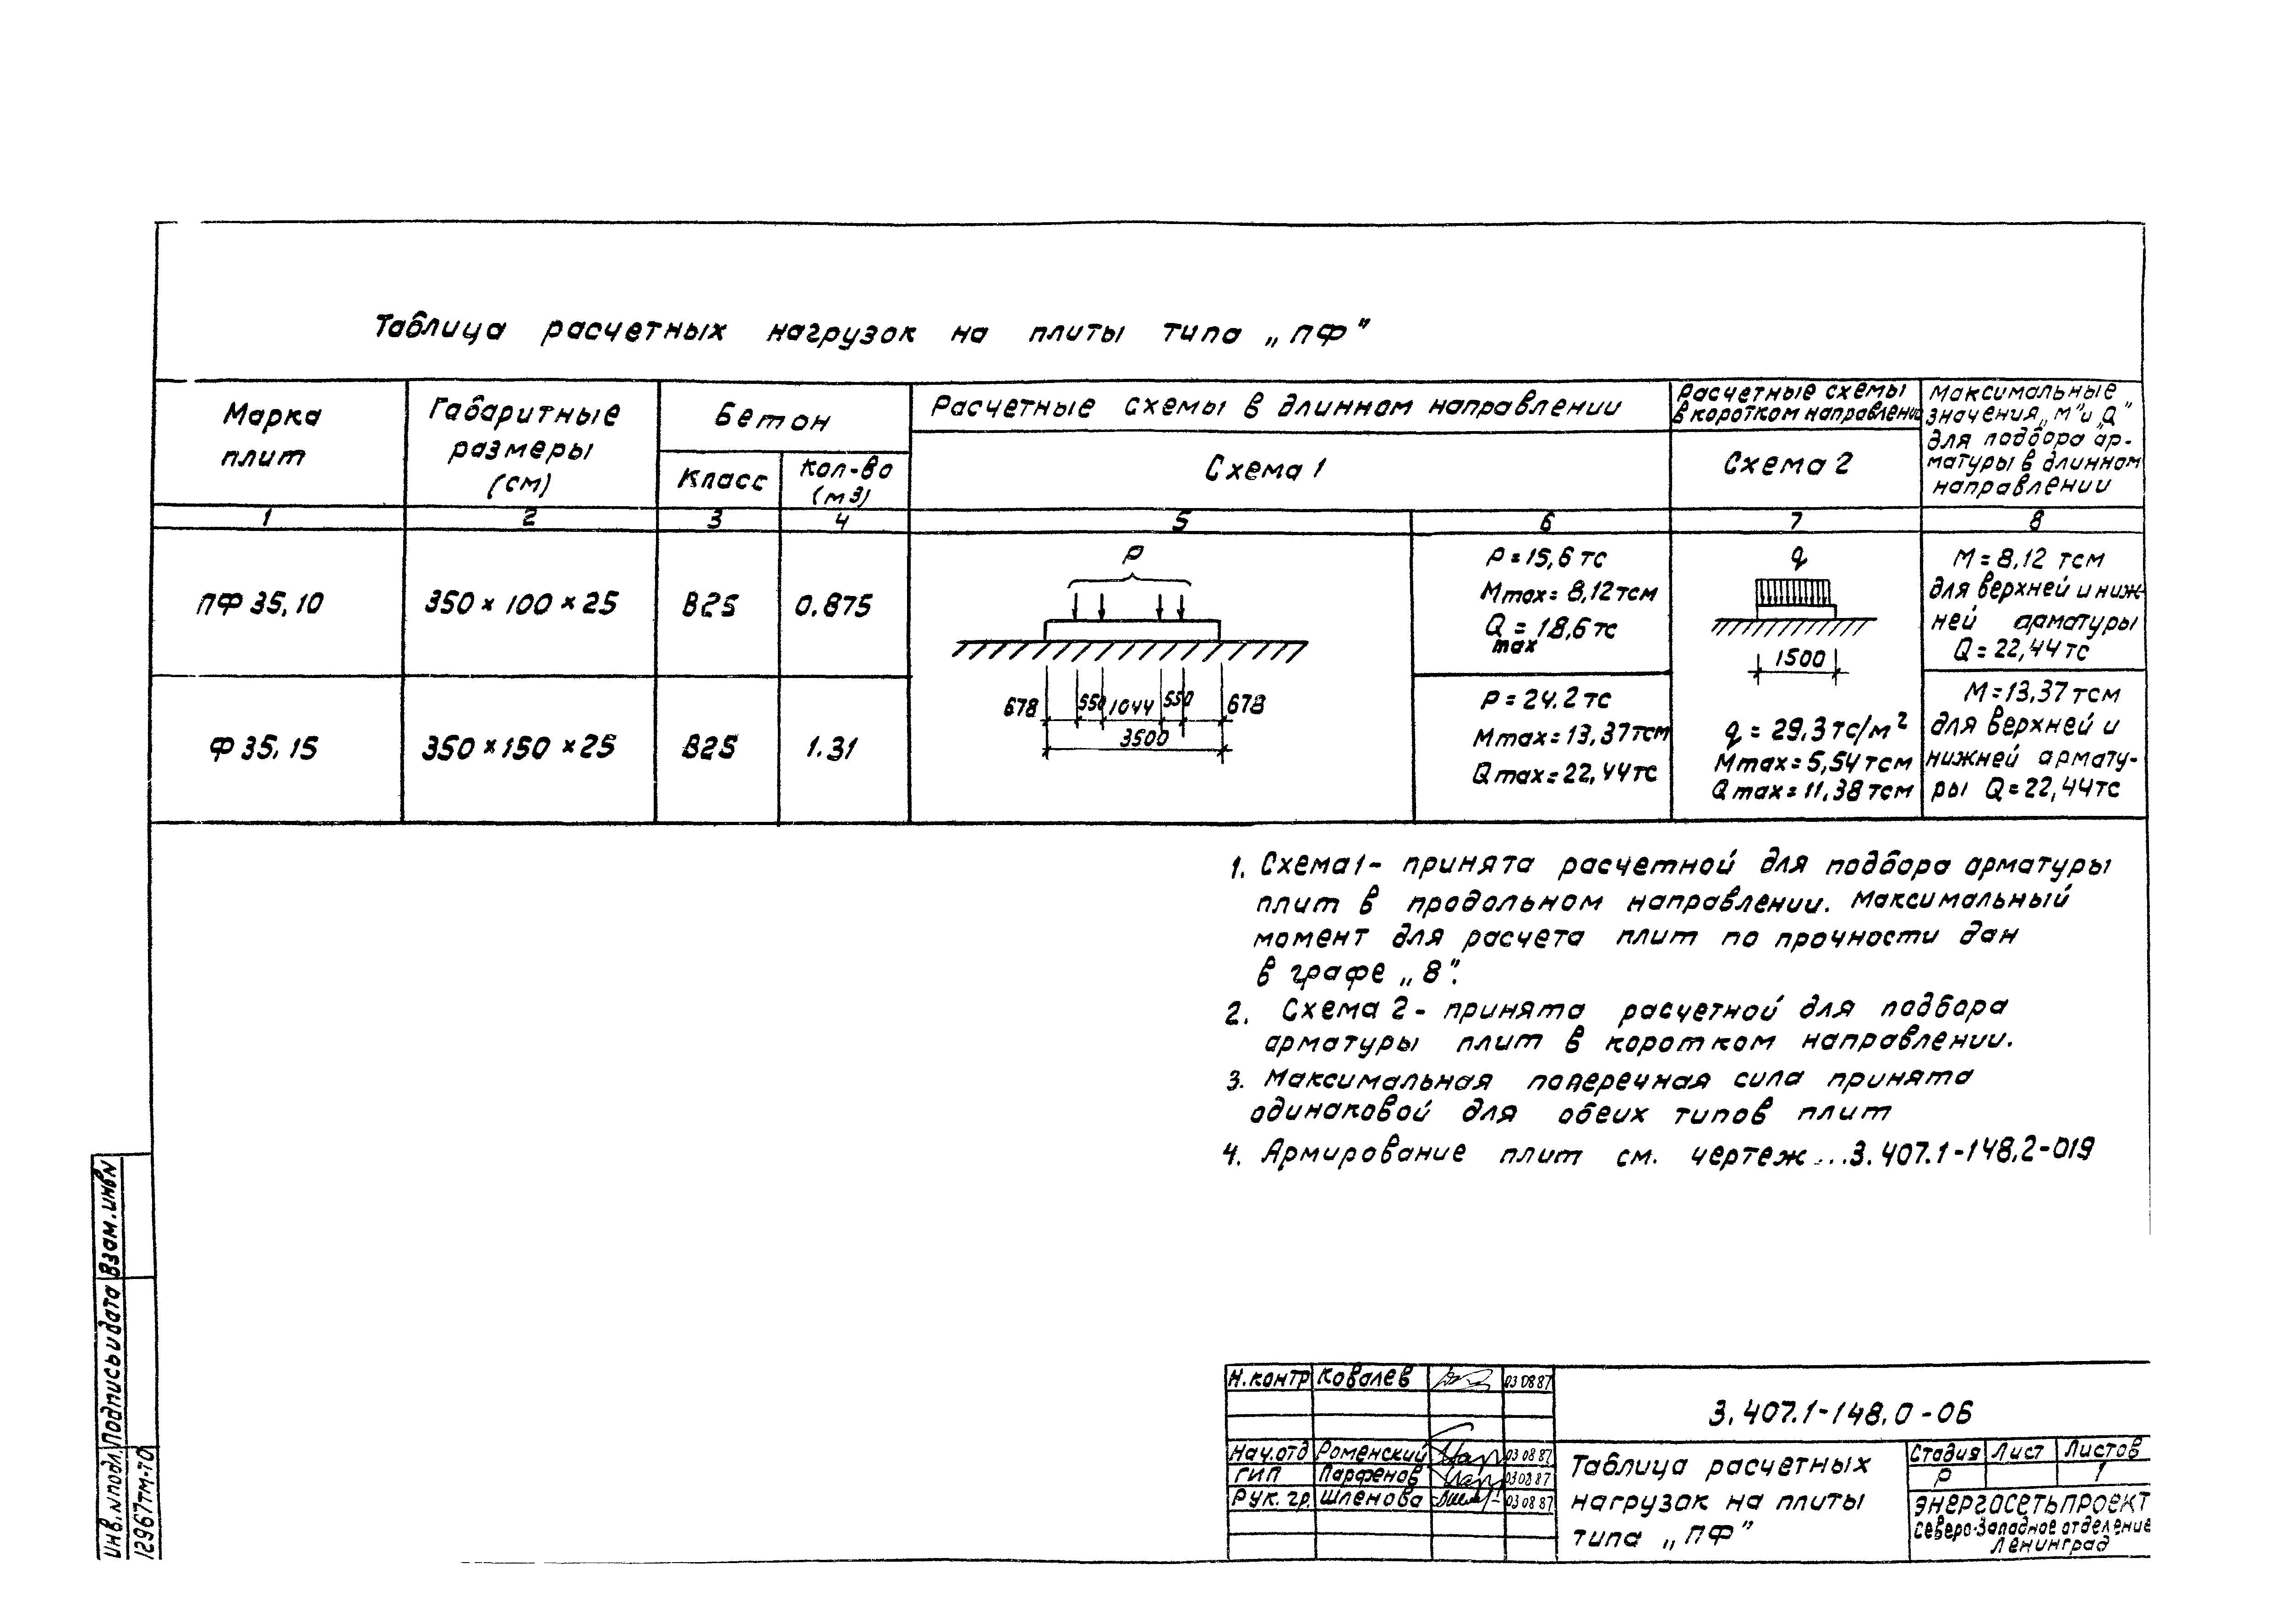 Таблица расчетных нагрузок на плиты типа „ПФ"
Марка
плит
Габаритные
размеры
(см)
Бетон
Класс
Кол-во
(м3)
Расчетные схемы в длинном направлении
Схема 1
Расчетные схемы
в коротком направлении
Схема 2
Максимальные
значения „М" и „Q"
для подбора ар-
матуры в длинном
направлении
1 2 3 4 5 6 7 8
ПФ 35.10
350 × 100 × 25
В25
0.875
Р
678 550 1044 550 678
3500
Р = 15,6 тс
Mmax = 8,12 тсм
Q = 18,6 тс
max
q
1500
М = 8,12 тсм
для верхней и ниж-
ней арматуры
Q = 22,44 тс
Ф 35.15
350 × 150 × 25
В25
1.31
Р = 24.2 тс
Mmax = 13,37 тсм
Qmax = 22,44 тс
q = 29,3 тс/м²
Mmax = 5,54 тсм
Qmax = 11,38 тсм
М = 13,37 тсм
для верхней и
нижней армату-
ры Q = 22,44 тс
1. Схема 1 - принята расчетной для подбора арматуры
плит в продольном направлении. Максимальный
момент для расчета плит по прочности дан
в графе „8".
2. Схема 2 - принята расчетной для подбора
арматуры плит в коротком направлении.
3. Максимальная поперечная сила принята
одинаковой для обеих типов плит
4. Армирование плит см. чертеж ...3.407.1-148.2-019
Взам. инв. N
Подпись и дата
Инв. N подл.
12967тм-т0
Н. контр Ковалев 03.08.87
Нач. отд Роменский 03.08.87
ГИП Парфенов 03.08.87
Рук. гр. Шленова 03.08.87
3.407.1-148.0-06
Таблица расчетных
нагрузок на плиты
типа „ПФ"
Стадия Лист Листов
Р 1
Энергосетьпроект
Северо-Западное отделение
Ленинград